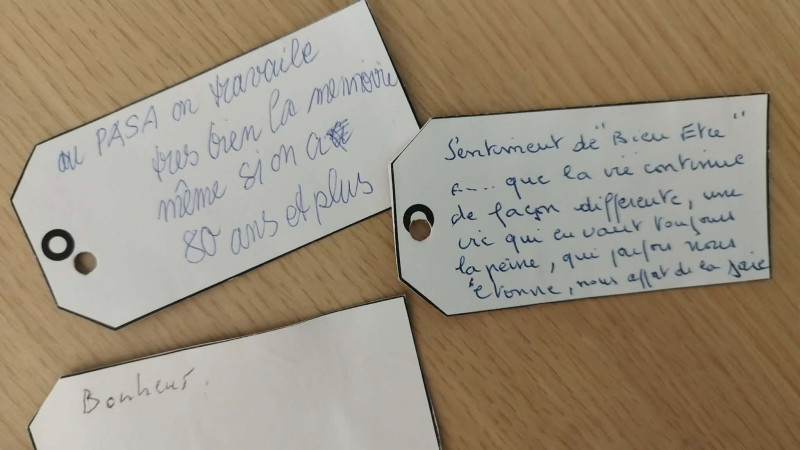 au PASA on travaile
tres bien la memoire
même si on a
80 ans et plus
Sentiment de "Bien Etre"
que la vie continue
de façon differente, une
vie qui en vaut toujours
la peine, qui parfois nous
etonne, nous
de la joie
Bonheur.